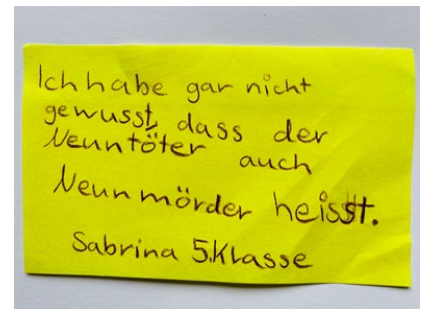 Ich habe gar nicht
gewusst, dass der
Neuntöter auch
Neunmörder heisst.
Sabrina 5.Klasse